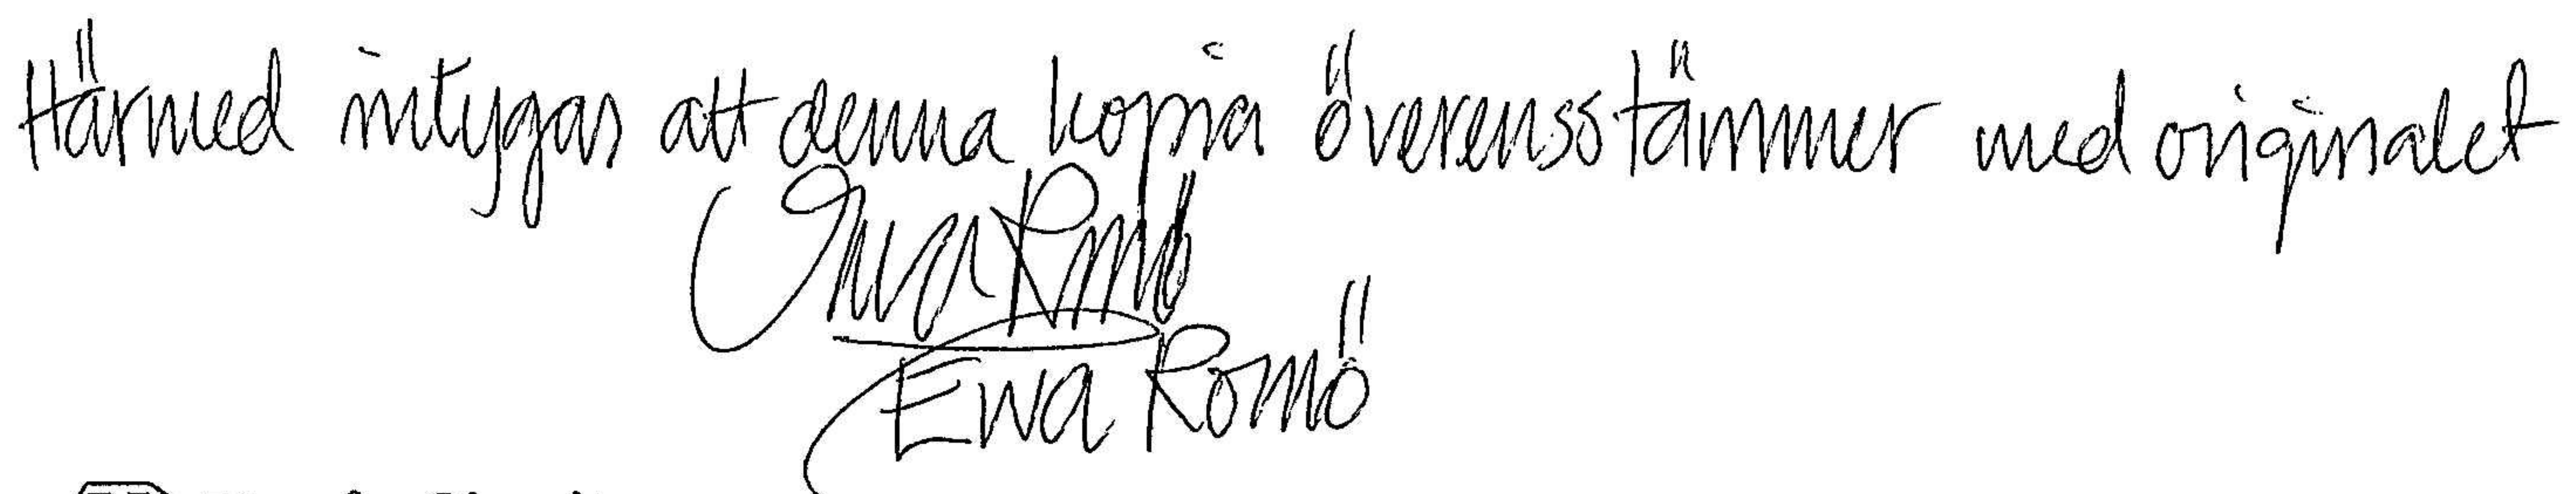 Härmed intygas att denna kopia överensstämmer med originalet
Ewa Romö
Ewa Romö